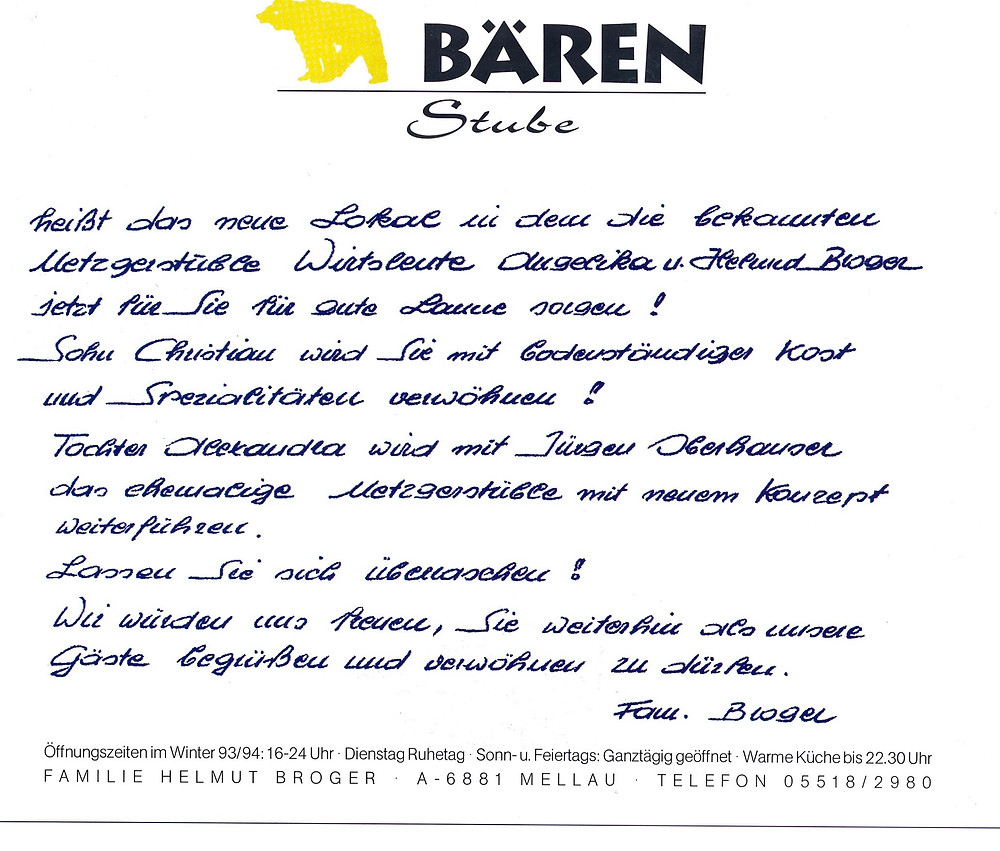 BÄREN
Stube
heißt das neue Lokal in dem die bekannten
Metzgerstüble Wirtsleute Angelika u. Helmut Broger
jetzt für Sie für gute Laune sorgen !
Sohn Christian wird Sie mit bodenständiger Kost
und Spezialitäten verwöhnen !
Tochter Alexandra wird mit Jürgen Oberhauser
das ehemalige Metzgerstüble mit neuem Konzept
weiterführen.
Lassen Sie sich überraschen !
Wir würden uns freuen, Sie weiterhin als unsere
Gäste begrüßen und verwöhnen zu dürfen.
Fam. Broger
Öffnungszeiten im Winter 93/94: 16-24 Uhr · Dienstag Ruhetag · Sonn- u. Feiertags: Ganztägig geöffnet · Warme Küche bis 22.30 Uhr
FAMILIE HELMUT BROGER · A-6881 MELLAU · TELEFON 05518/2980